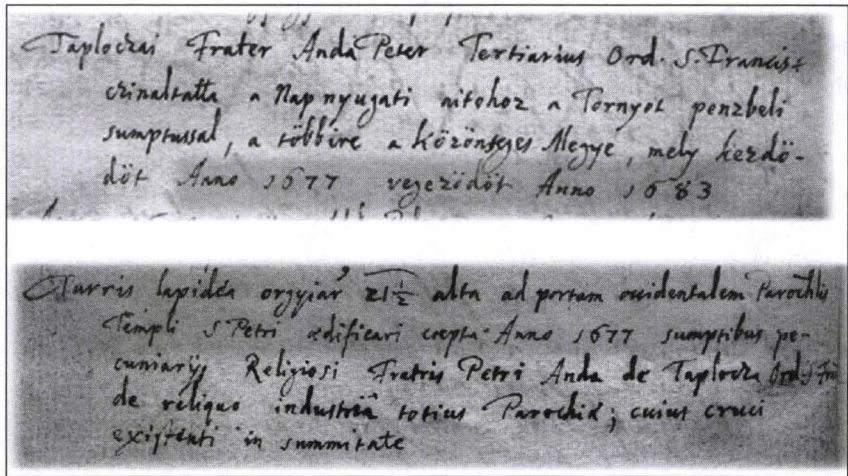 Taploczai Frater Anda Peter Tertiarius Ord. S. Francis:
czinaltatta a Napnyugati aitohoz a Tornyot penzbeli
sumptussal, a többire a közönseges Megye, mely kezdö-
döt Anno 1677 vegezödöt Anno 1683
Turris lapidea orgyiar 21½ alta ad portam occidentalem Parochlis
Templi S Petri ædificari cœpta Anno 1677 sumptibus pe-
cuniarijs Religiosi Fratris Petri Anda de Taplocza Ord. S. Fra
de reliquo industriâ totius Parochiæ; cuius cruci
existenti in summitate